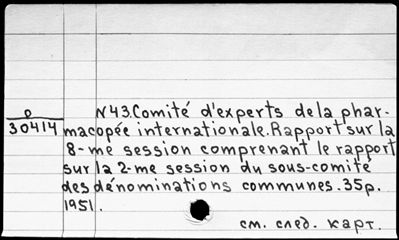 О
30414
N43. Comité d'experts de la phar-
macopée internationale. Rapport sur la
8-me session comprenant le rapport
sur la 2-me session du sous-comité
des dénominations communes. 35p.
1951.
см. след. карт.